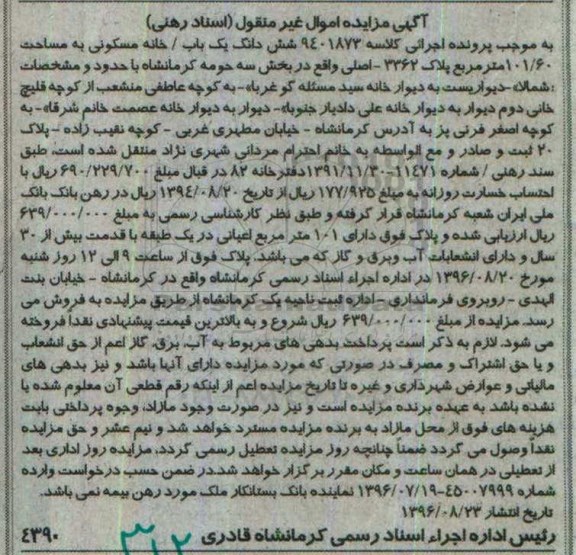 آگهی مزایده اموال غیر منقول (اسناد رهنی)
به موجب پرونده اجرائی کلاسه ۹۴۰۱۸۷۳ شش دانگ یک باب / خانه مسکونی به مساحت
۱۰۱/۶۰متر مربع پلاک ۳۳۶۲ -اصلی واقع در بخش سه حومه کرمانشاه با حدود و مشخصات
:شمالا-دیواریست به دیوار خانه سید مسئله گو غربا»- به کوچه عاطفی منشعب از کوچه قلیچ
خانی دوم دیوار به دیوار خانه علی دادیار جنوبا»- دیوار به دیوار خانه عصمت خانم شرقا»- به
کوچه اصغر فرنی پز به آدرس کرمانشاه - خیابان مطهری غربی - کوچه نقیب زاده -پلاک
۲۰ ثبت و صادر و مع الواسطه به خانم احترام مردانی شهری نژاد منتقل شده است، طبق
سند رهنی / شماره ۱۱۴۷۱-۱۳۹۱/۱۱/۳۰دفترخانه ۸۲ در قبال مبلغ ۶۹۰/۲۲۹/۷۰۰ ریال با
احتساب خسارت روزانه به مبلغ ۱۷۷/۹۲۵ ریال از تاریخ ۱۳۹۴/۰۸/۲۰ ریال در رهن بانک بانک
ملی ایران شعبه کرمانشاه قرار گرفته و طبق نظر کارشناسی رسمی به مبلغ ۶۳۹/۰۰۰/۰۰۰
ریال ارزیابی شده و پلاک فوق دارای ۱۰۱ متر مربع اعیانی در یک طبقه با قدمت بیش از ۳۰
سال و دارای انشعابات آب وبرق و گاز که می باشد. پلاک فوق از ساعت ۹ الی ۱۲ روز شنبه
مورخ ۱۳۹۶/۰۸/۲۰ در اداره اجراء اسناد رسمی کرمانشاه واقع در کرمانشاه - خیابان بنت
الهدی - روبروی فرمانداری -اداره ثبت ناحیه یک کرمانشاه از طریق مزایده به فروش می
رسد. مزایده از مبلغ ۶۳۹/۰۰۰/۰۰۰ ریال شروع و به بالاترین قیمت پیشنهادی نقدا فروخته
می شود. لازم به ذکر است پرداخت بدهی های مربوط به آب، برق، گاز اعم از حق انشعاب
و یا حق اشتراک و مصرف در صورتی که مورد مزایده دارای آنها باشد و نیز بدهی های
مالیاتی و عوارض شهرداری و غیره تا تاریخ مزایده اعم از اینکه رقم قطعی آن معلوم شده یا
نشده باشد به عهده برنده مزایده است و نیز در صورت وجود مازاد، وجوه پرداختی بابت
هزینه های فوق از محل مازاد به برنده مزایده مسترد خواهد شد و نیم عشر و حق مزایده
نقداً وصول می گردد ضمناً چنانچه روز مزایده تعطیل رسمی گردد، مزایده روز اداری بعد
از تعطیلی در همان ساعت و مکان مقرر برگزار خواهد شد.در ضمن حسب درخواست وارده
شماره ۴۵۰۰۷۹۹۹-۱۳۹۶/۰۷/۱۹ نماینده بانک بستانکار ملک مورد رهن بیمه نمی باشد.
تاریخ انتشار ۱۳۹۶/۰۸/۲۳
رئیس اداره اجراء اسناد رسمی کرمانشاه قادری ۴۳۹۰
۳۱۲